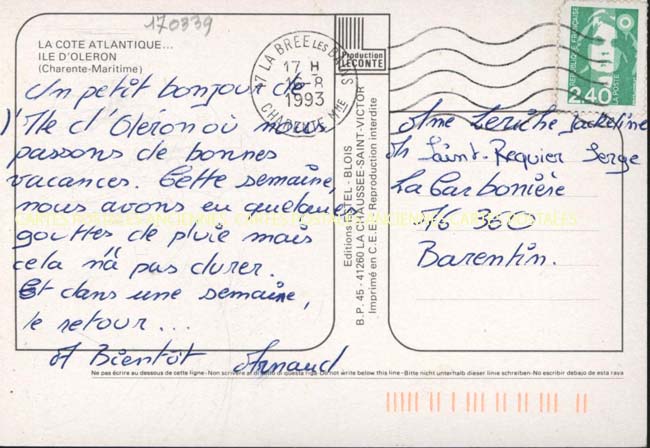 170339
LA COTE ATLANTIQUE...
ILE D'OLERON
(Charente-Maritime)
Un petit bonjour de
l'Ile d'Oléron où nous
passons de bonnes
vacances. Cette semaine,
nous avons eu quelques
gouttes de pluie mais
cela n'a pas durer.
Et dans une semaine,
le retour...
A Bientôt Arnaud
17 LA BREE LES BAINS
17 H
16-8
1993
CHARENTE Mme
Production
LECONTE
REPUBLIQUE FRANÇAISE
LA POSTE
2,40
Editions - BLOIS
B.P. 45 - 41260 LA CHAUSSEE-SAINT-VICTOR
Imprimé en C.E.E. - Reproduction interdite
Mme Leriche Jackeline
M Saint-Requier Serge
La Carbonière
76 360
Barentin.
CARTES POSTALES ANCIENNES CARTES POSTALES ANCIENNES CARTES POSTALES
Ne pas écrire au dessous de cette ligne - Non scrivere al di sotto di questa riga - Do not write below this line - Bitte nicht unterhalb dieser linie schreiben - No escribir debajo de esta raya